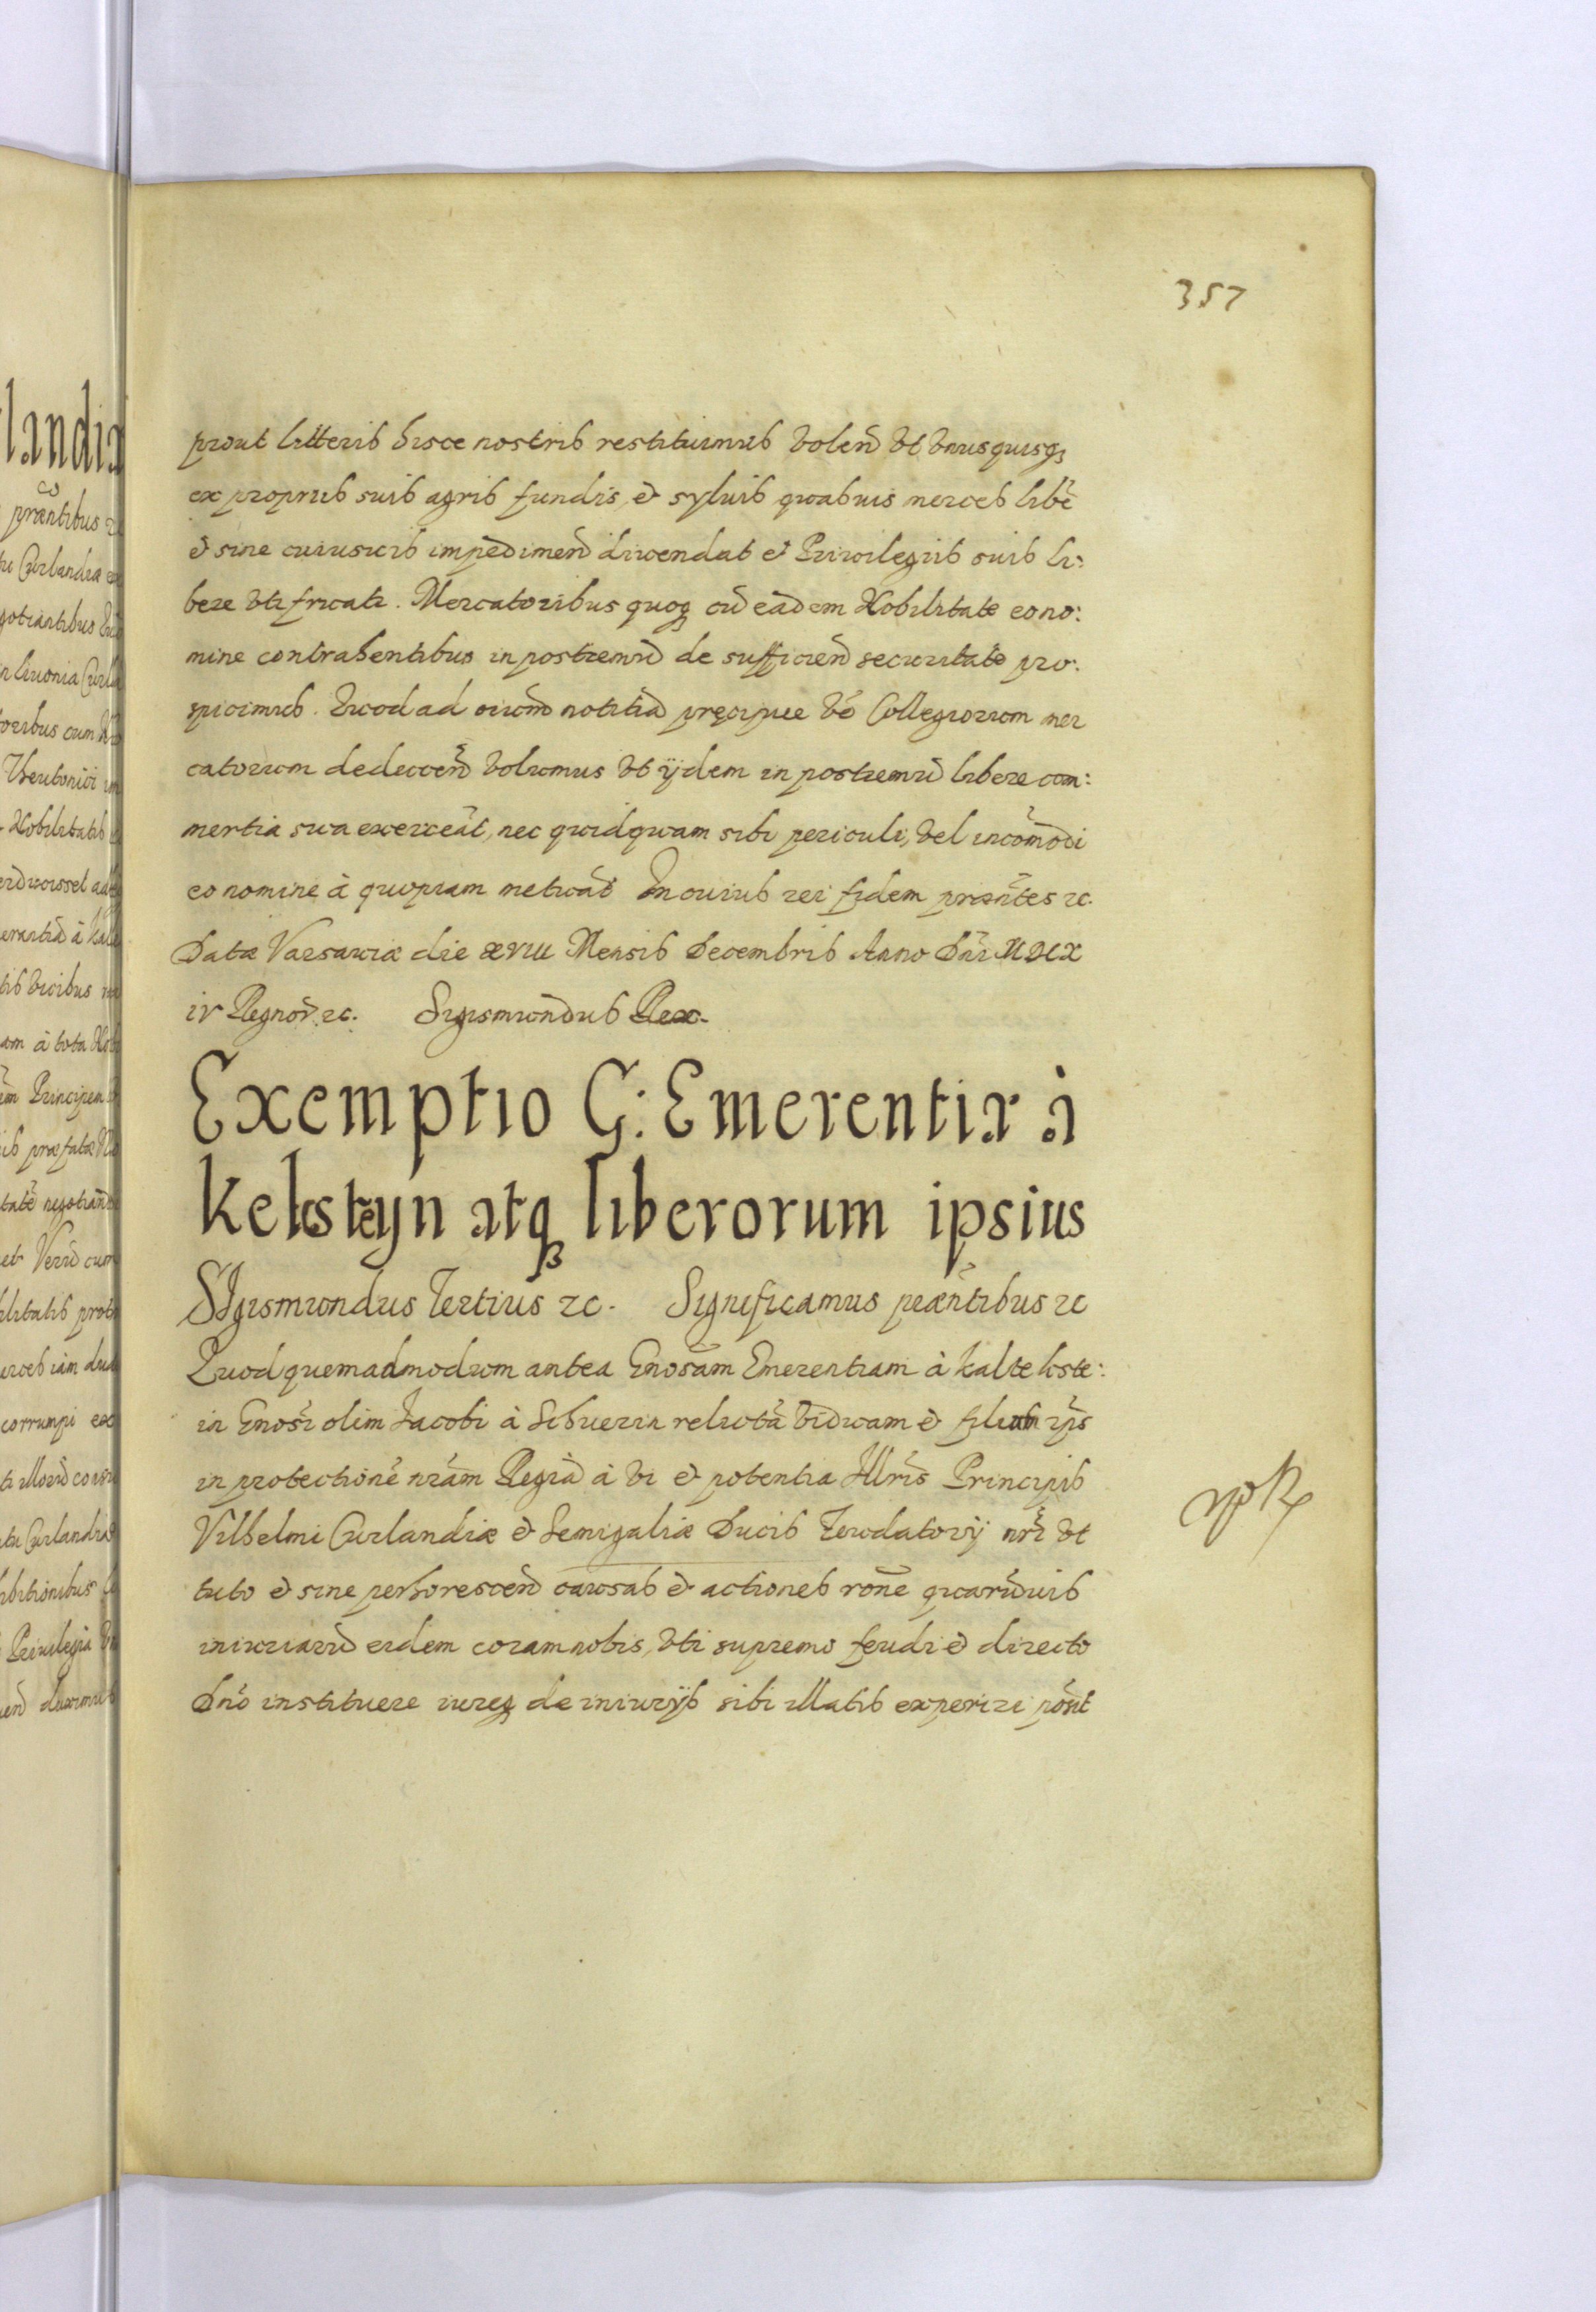 357
prout litteris hisce nostris restituimus volen̄ vt vnusquisqȝ
ex proprijs suis agris fundis et syluis quasuis merces libē
et sine cuiusuis impedimen̄ diuendat et Priuilegiis suis li:
bere vti fruati. Mercatoribus quoqȝ cū eadem Nobilitate eo no:
mine contrahentibus in posterum̄ de sufficien̄ securitate pro:
spicimus. Quod ad oium̄ notitiā pręcipue vō Collegiorum mer
catorum deducen̄ volumus vt ijdem in posterum̄ libere com:
mertia sua exerceāt, nec quidquam sibi periculi, vel incōmodi
eo nomine à quopiam metuāt In cuius rei fidem præn̄tes zc.
Datæ Varsauiæ die XVIII Mensis Decembris Anno Dn̄i MDCX
ir Regnor̄ zc. Sigismundus Rex.
Exemptio G: Emerentiæ à
Kelksteyn atqȝ liberorum ipsius
SIgismundus Tertius zc. Significamus præn̄tibus zc
Quod quemadmodum antea Gnosām Emerentiam à Kaltekste:
in Gnosī olim Jacobi à Schuerin relictā viduam et filium ip̄s
in protectionē nrām Regiā à vi et potentia Illrīs Principis
Vilhelmi Curlandiæ et Semigaliæ Ducis Feudatorij nrī vt
tuto et sine perhorescen̄ causas et actiones rōne quarūuis
iniuriarū eidem coram nobis, vti supremo feudi et directo
Dn̄o instituere iureqȝ de iniurijs sibi illatis experiri pōsit